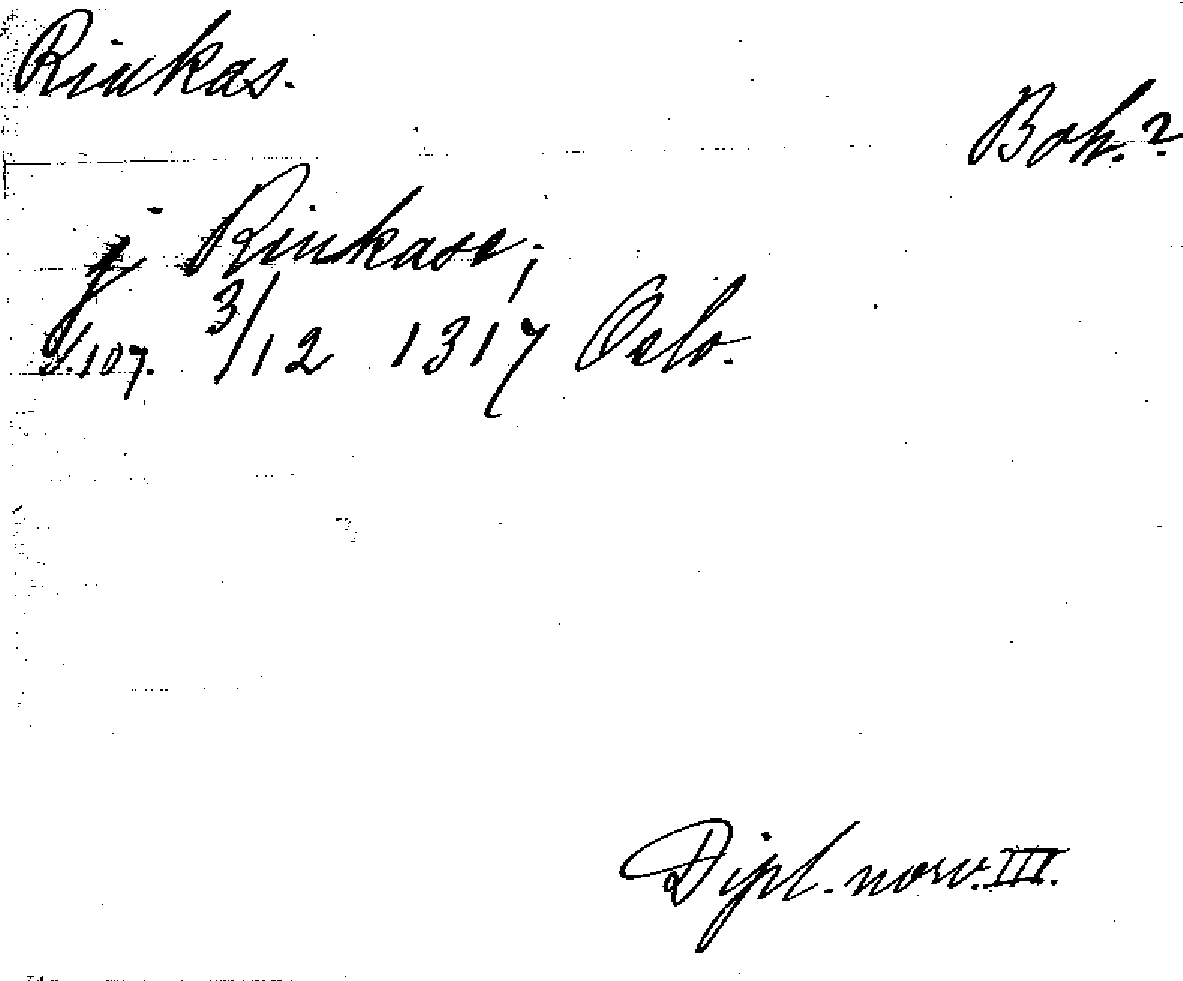 Rinkas.
Boh.?
j Rinkase;
s.107. 3/12 1317 Oslo.
Dipl. norv. III.